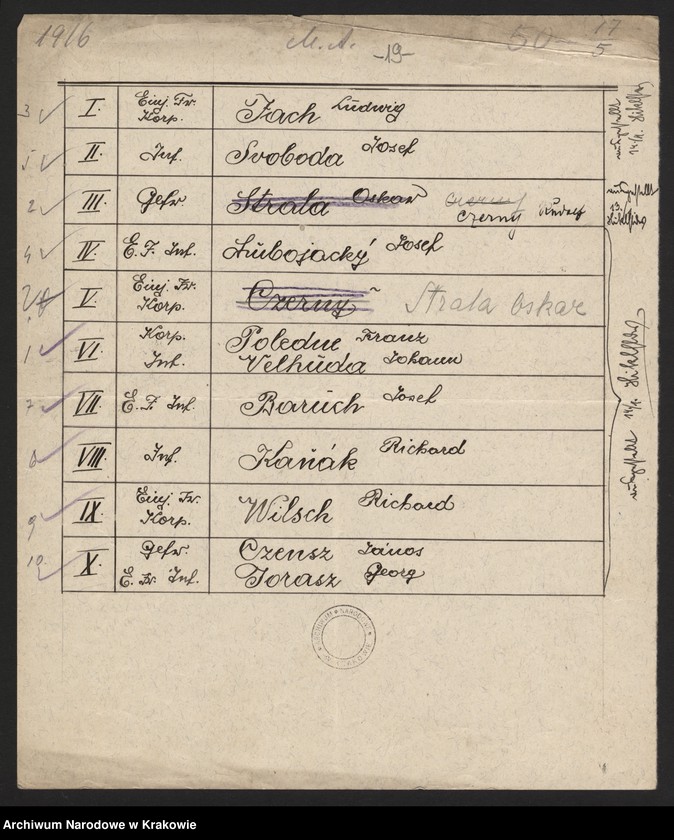 1916 M.A. -19- 50- 17/5
3 I. Einj. Fr. Korp. Fach Ludwig
5 II. Inf. Svoboda Josef
2 III. Gefr. Strala Oskar Czerny Rudolf
4 IV. E. F. Inf. Lubojacký Josef
V. Einj. Fr. Korp. Czerny Strala Oskar
1 VI. Korp. Poledne Franz
Inf. Velhuda Johann
7 VII. E. F. Inf. Baruch Josef
8 VIII. Inf. Kaňák Richard
9 IX. Einj. Fr. Korp. Wilsch Richard
10. X. Gefr. Czensz János
E. Fr. Inf. Torasz Georg
ARCHIWUM NARODOWE W KRAKOWIE
Archiwum Narodowe w Krakowie